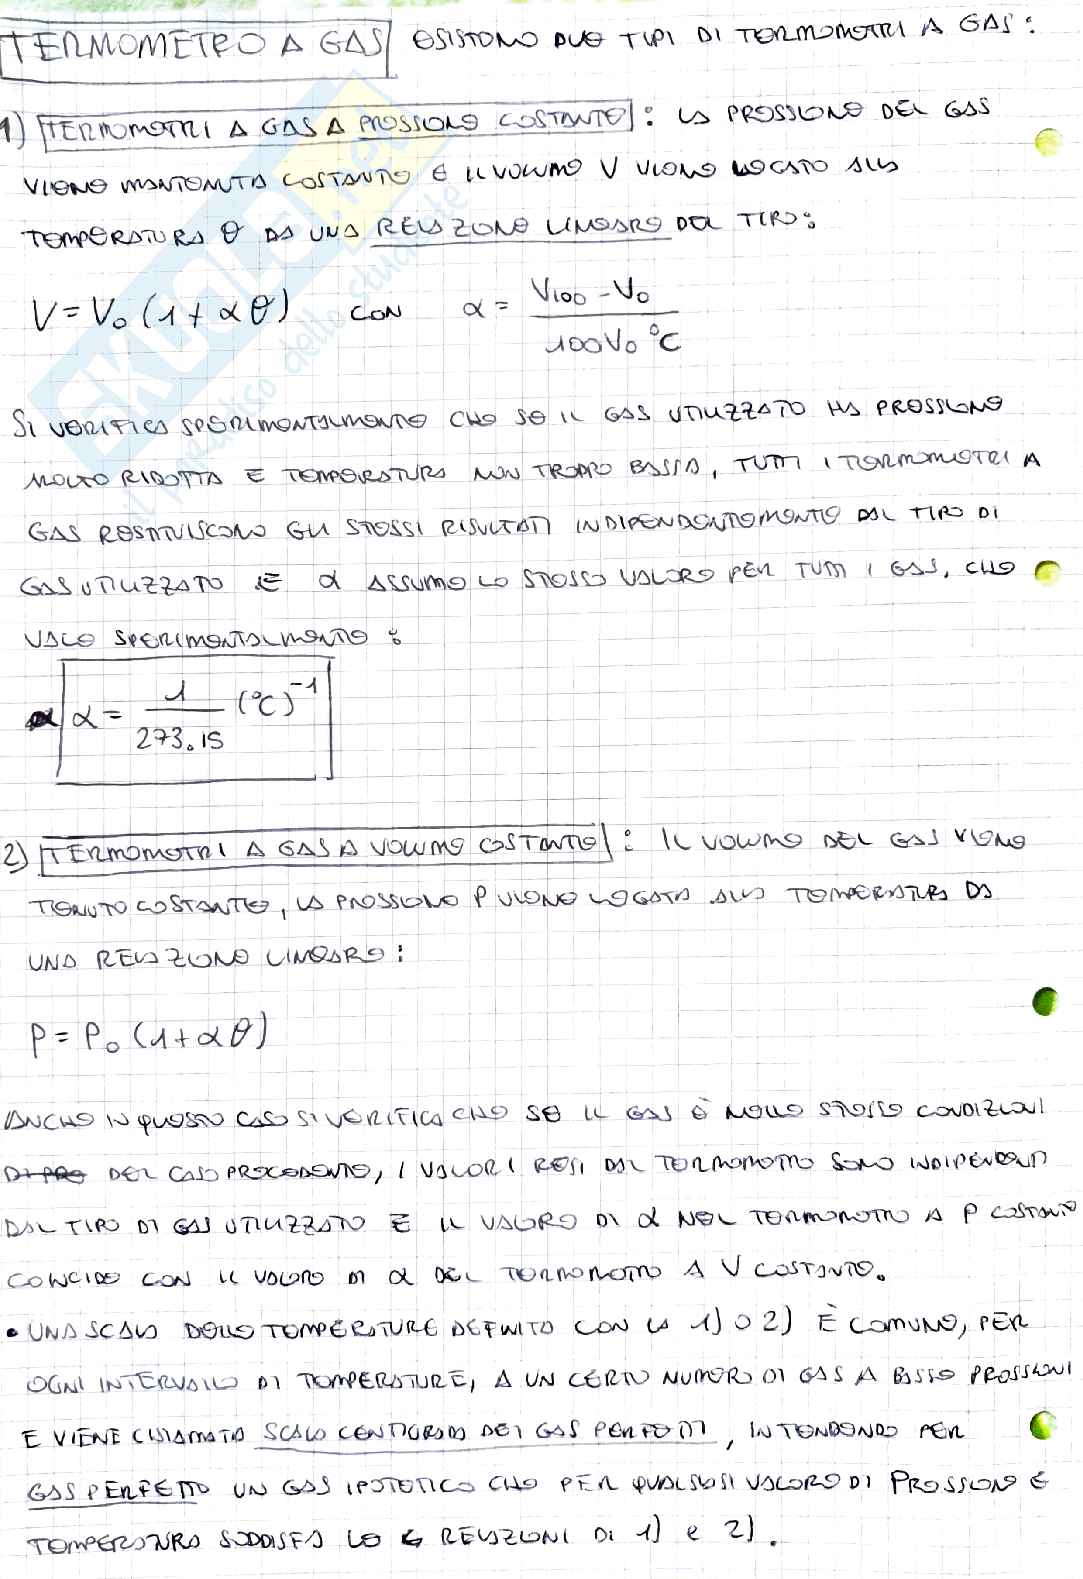 TERMOMETRO A GAS ESISTONO DUE TIPI DI TERMOMETRI A GAS:
1) TERMOMETRI A GAS A PRESSIONE COSTANTE: LA PRESSIONE DEL GAS
VIENE MANTENUTA COSTANTE E IL VOLUME V VIENE LEGATO ALLA
TEMPERATURA θ DA UNA RELAZIONE LINEARE DEL TIPO:
V = V₀ (1 + α θ) CON α = (V₁₀₀ - V₀) / (100 V₀ °C)
SI VERIFICA SPERIMENTALMENTE CHE SE IL GAS UTILIZZATO HA PRESSIONE
MOLTO RIDOTTA E TEMPERATURA NON TROPPO BASSA, TUTTI I TERMOMETRI A
GAS RESTITUISCONO GLI STESSI RISULTATI INDIPENDENTEMENTE DAL TIPO DI
GAS UTILIZZATO E α ASSUME LO STESSO VALORE PER TUTTI I GAS, CHE
VALE SPERIMENTALMENTE:
α = 1 / 273.15 (°C)⁻¹
2) TERMOMETRI A GAS A VOLUME COSTANTE: IL VOLUME DEL GAS VIENE
TENUTO COSTANTE, LA PRESSIONE P VIENE LEGATA ALLA TEMPERATURA DA
UNA RELAZIONE LINEARE:
P = P₀ (1 + α θ)
ANCHE IN QUESTO CASO SI VERIFICA CHE SE IL GAS È NELLE STESSE CONDIZIONI
DI PRE DEL CASO PRECEDENTE, I VALORI RESI DAL TERMOMETRO SONO INDIPENDENTI
DAL TIPO DI GAS UTILIZZATO E IL VALORE DI α NEL TERMOMETRO A P COSTANTE
COINCIDE CON IL VALORE DI α DEL TERMOMETRO A V COSTANTE.
• UNA SCALA DELLE TEMPERATURE DEFINITA CON LA 1) O 2) È COMUNE, PER
OGNI INTERVALLO DI TEMPERATURE, A UN CERTO NUMERO DI GAS A BASSE PRESSIONI
E VIENE CHIAMATA SCALA CENTIGRADA DEI GAS PERFETTI, INTENDENDO PER
GAS PERFETTO UN GAS IPOTETICO CHE PER QUALSIASI VALORE DI PRESSIONE E
TEMPERATURA SODDISFA LE RELAZIONI DI 1) e 2).
SKUOLA.net
il paradiso dello studente